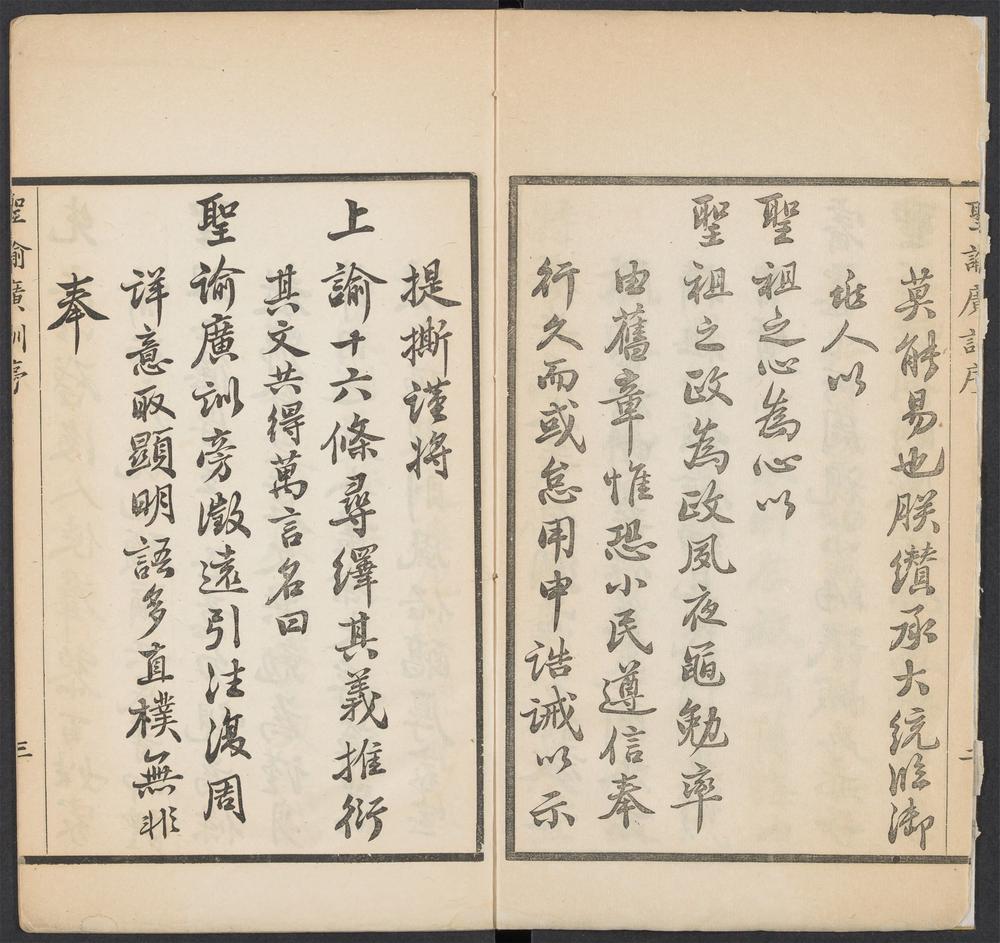 聖諭廣訓序
二
莫能易也朕纘承大統臨御
兆人以
聖祖之心為心以
聖祖之政為政夙夜黽勉率
由舊章惟恐小民遵信奉
行久而或怠用申誥誡以示
提撕謹將
上諭十六條尋繹其義推衍
其文共得萬言名曰
聖諭廣訓旁徵遠引往復周
詳意取顯明語多直樸無非
奉
聖諭廣訓序
三